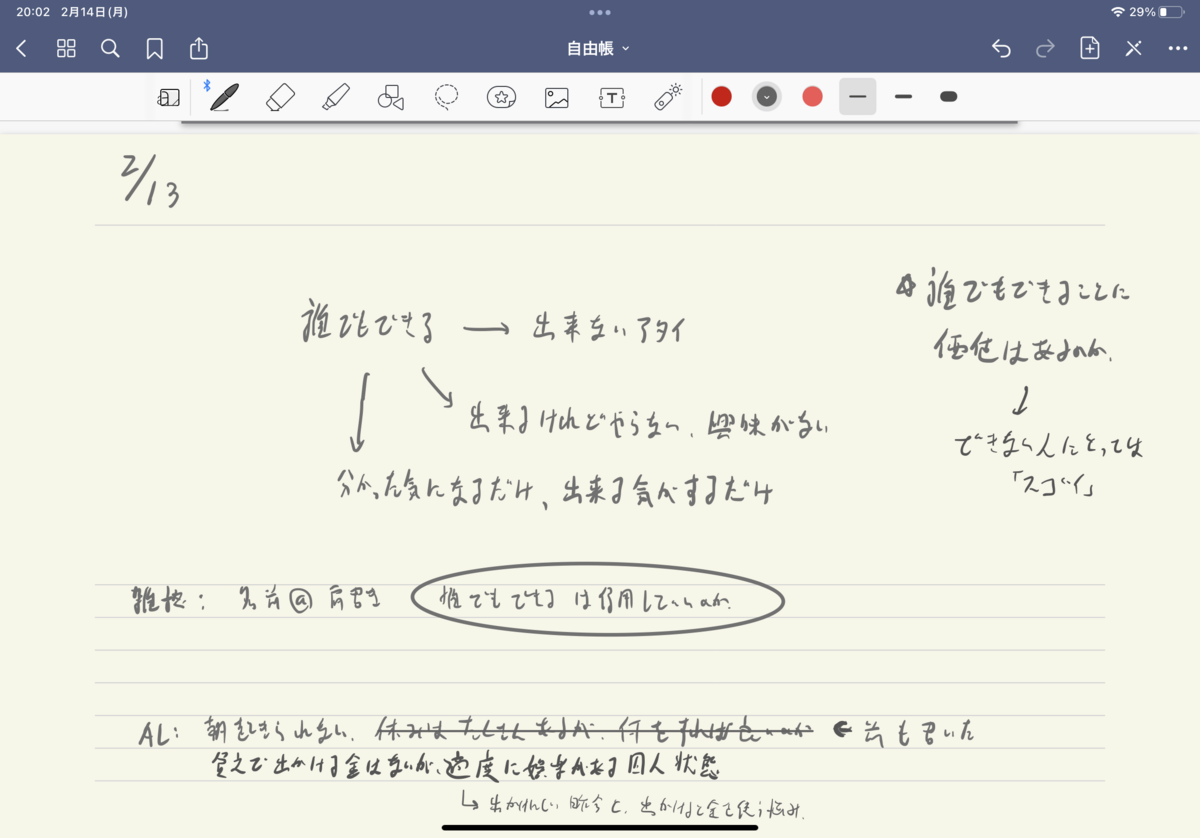 20:02 2月14日(月)
29%
自由帳
2/13
誰でもできる → 出来ないアタイ
出来るけれどやらない、興味がない
分かった気になるだけ、出来る気がするだけ
誰でもできることに
価値はあるのか。
↓
できない人にとっては
「スゴイ」
雑感: 名前@肩書き 誰でもできるは信用していいのか。
AL: 朝起きられない。休みはたくさんあるが、何をすれば良いのか ← 前も書いた
貧乏で出かける金はないが、適度に娯楽がある囚人状態
↳ 出かけると金を使う悩み。